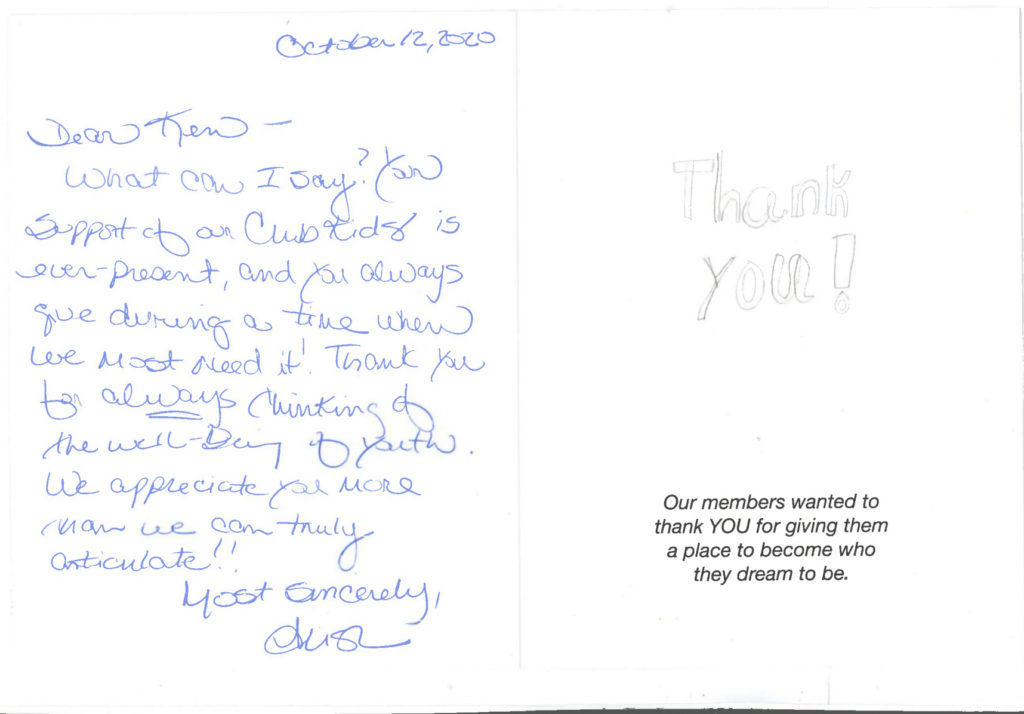 October 12, 2020
Dear Ken —
What can I say? Your
support of our Club Kids is
ever-present, and you always
give during a time when
we most need it! Thank you
for always thinking of
the well-Being of youth.
We appreciate you more
than we can truly
articulate!!
Most Sincerely,
Thank
you!
Our members wanted to
thank YOU for giving them
a place to become who
they dream to be.